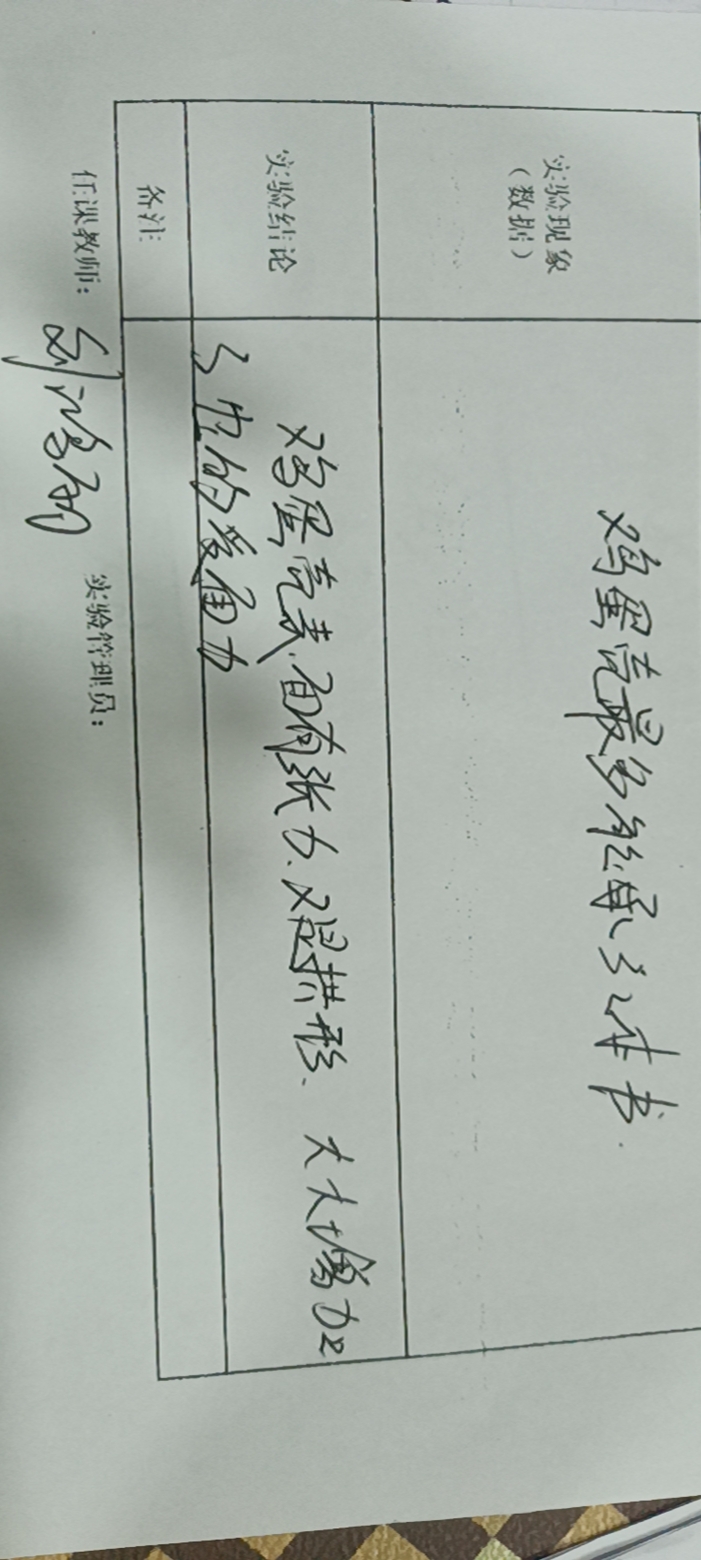 实验现象
（数据）
鸡蛋壳最多能承3本书.
实验结论
鸡蛋壳表面有张力、又是拱形、大大增加
了它的受面力
备注
任课教师：
实验管理员：